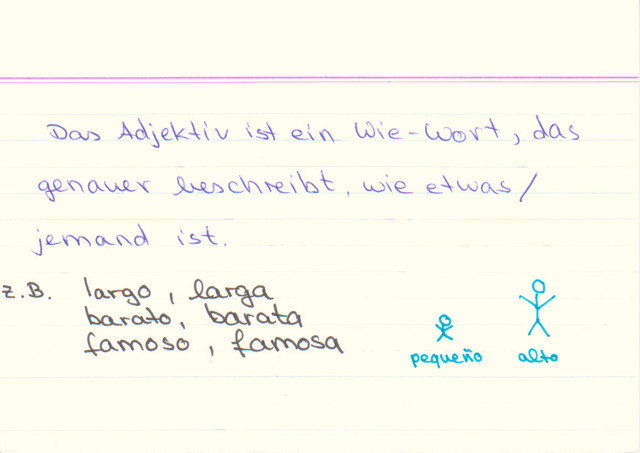 Das Adjektiv ist ein Wie-Wort, das
genauer beschreibt, wie etwas/
jemand ist.
z.B. largo, larga
barato, barata
famoso, famosa
pequeño alto